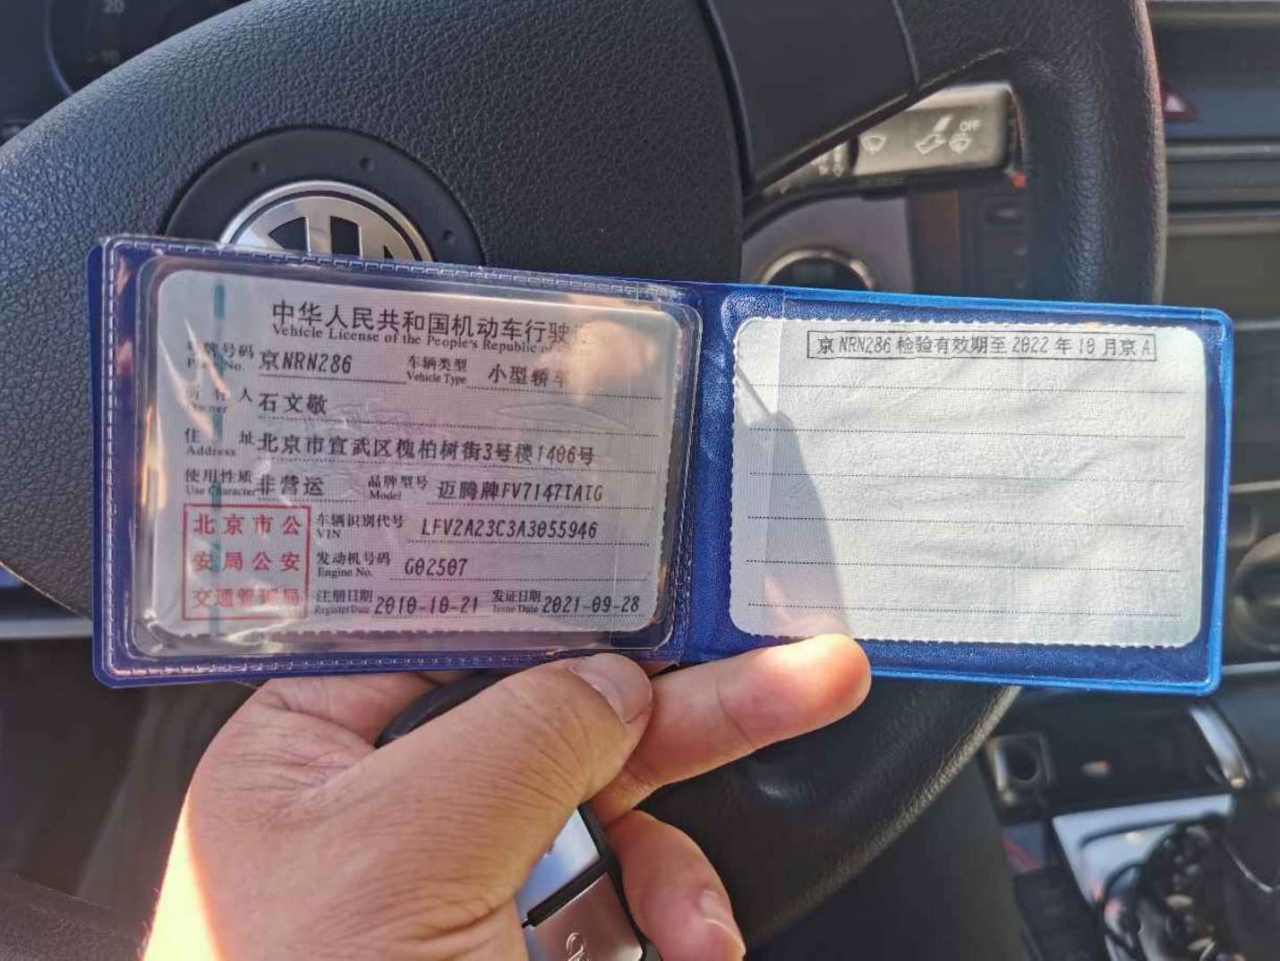 中华人民共和国机动车行驶
Vehicle License of the People's Republic of
号牌号码 京NRN286 车辆类型 小型轿车
Plate No. Vehicle Type
所有人 石文敬
Owner
住址 北京市宣武区槐柏树街3号楼1406号
Address
使用性质 非营运 品牌型号 迈腾牌FV7147TATG
Use Character Model
北京市公安局公安交通管理局
车辆识别代号 LFV2A23C3A3055946
VIN
发动机号码 G02507
Engine No.
注册日期 2010-10-21 发证日期 2021-09-28
Register Date Issue Date
京NRN286 检验有效期至 2022 年 10 月京A
OFF
20